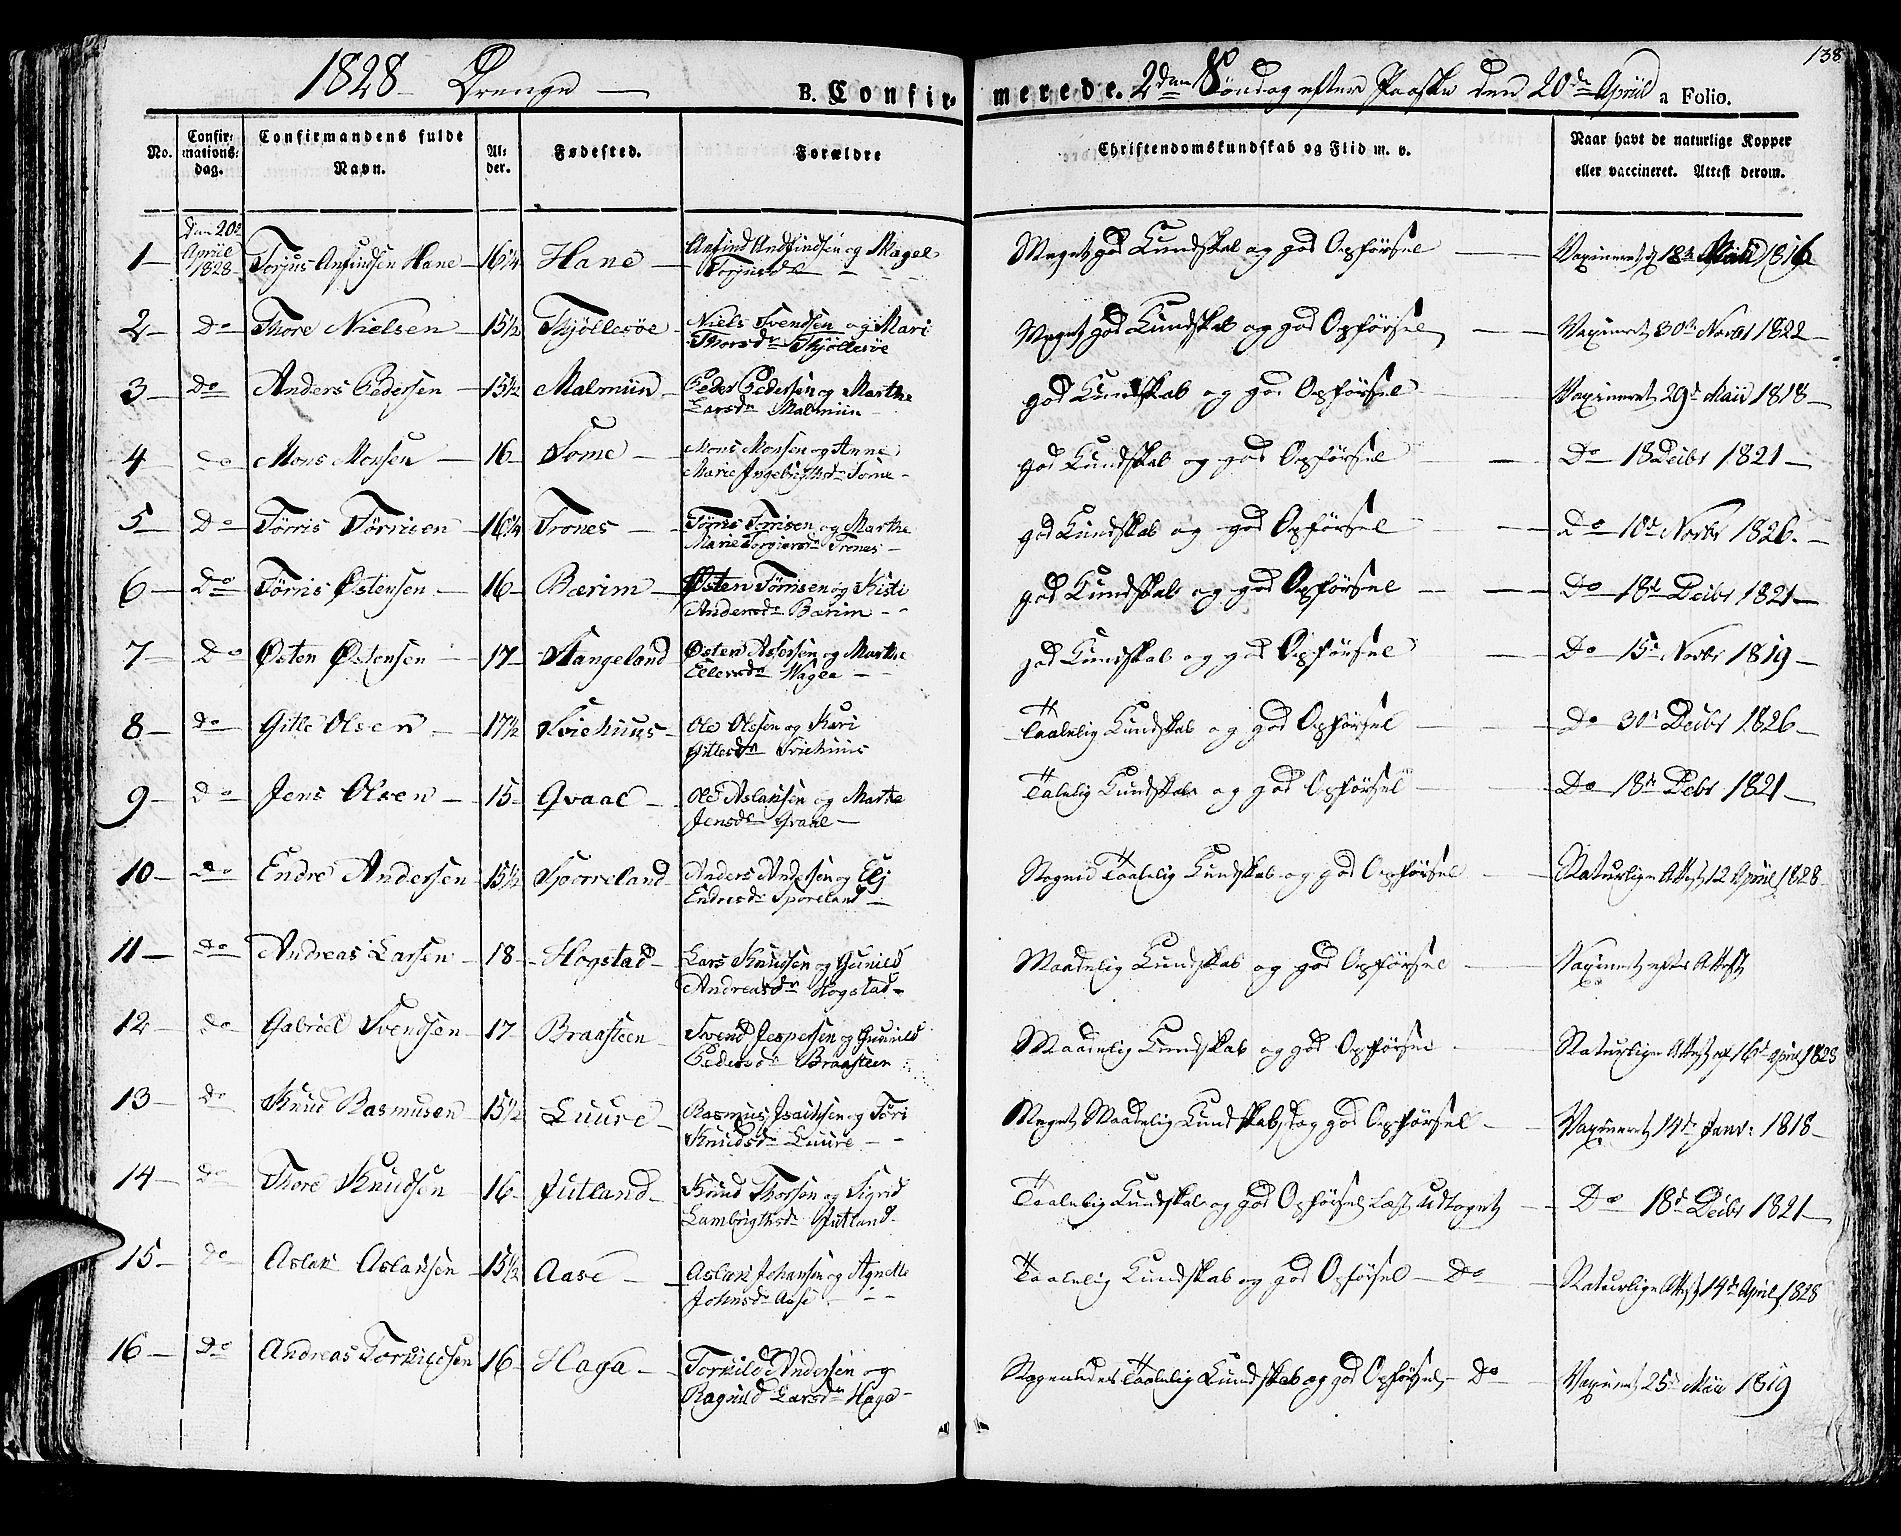 138
1828 Drenge — B. Confirmerede. 2den Søndag efter Paaske den 20de Apriil a Folio.
No. Confirmationsdag. Confirmandens fulde Navn. Alder. Fødested. Forældre Christendomskundskab og Flid m. v. Naar havt de naturlige Kopper eller vaccineret. Attest derom.
1 — Den 20de Apriile 1828 — Torjus Anfindsen Hane — 16 1/4 Hane — Anfind Andfindsen og Magel Torjusdr — Meget god Kundskab og god Opførsel — Vaxineret 1816
2 — Do — Thore Nielsen — 15 1/2 Skjöllesöe — Niels Svendsen og Mari Thorsdr Skjöllesöe Meget god Kundskab og god Opførsel — Vaxineret 30te Novbr 1822 —
3 — Do — Anders Pedersen — 15 1/2 Malmiin — Peder Pedersen og Marthe Larsdr Malmiin — god Kundskab og god Opførsel — Vaxineret 29d Maii 1818 —
4 — Do — Mons Monsen — 16 — Some — Mons Monsen og Anne Marie Ingebrigthsdr Some — god Kundskab og god Opførsel — Do — 18 Decbr 1821 —
5 — Do — Tørris Tørrisen — 16 1/4 Trones — Tørris Tørrisen og Marthe Marie Torgiersdr Trones — god Kundskab og god Opførsel — Do — 10d Novbr 1826. —
6 — Do — Tørris Østensen — 16 — Bærim — Østen Tørrisen og Kisti Andersdr Bærim — god Kundskab og god Opførsel — Do — 18d Decbr 1821 —
7 — Do — Østen Østensen — 17 — Stangeland Østen Assersen og Marthe Ellersdr Wagle — god Kundskab og god Opførsel — Do — 15d Novbr 1819 —
8 — Do — Gitle Olsen — 17 1/2 Sviehuus — Ole Olsen og Kari Gitlesdr Sviehuus Taalelig Kundskab og god Opførsel — Do 30d Decbr 1826 —
9 — Do — Jens Olsen — 15 — Qvaal — Ole Aslaksen og Marthe Jensdr Qvaal — Talelig Kundskab og god Opførsel — Do — 18de Debr 1821 —
10 — Do — Endre Andersen — 15 1/2 Anders Andersen og Elj Endresdr — Nogenled Taalelig Kundskab og god Opførsel — Naturlige Attest 12 Apriil 1828 —
11 — Do — Andreas Larsen — 18 — Hogstad — Lars Knudsen og Gunild Andreasdr Hogstad — Maadelig Kundskab og god Opførsel — Vaxineret efter Attest
12 — Do — Gabriel Svendsen — 17 — Braasteen — Svend Jespersen og Gunild Pedersdr Braasteen Maadelig Kundskab og god Opførsel — Naturlige Attest af 16d April 1828
13 — Do — Knud Rasmusen — 15 1/2 Luure — Rasmus Isachsen og Tøri Knudsdr Luure — Meget Maadelig Kundskab og god Opførsel — Vaxineret 14de Janr: 1818 —
14 — Do — Thore Knudsen — 16 — Jutland — Knud Thorsen og Sigrid Lambrigthsdr Jutland — Taalelig Kundskab og god Opførsel Læst Udtoget — Do 18d Decbr 1821 —
15 — Do — Aslak Aslaksen — 15 1/2 Aase — Aslak Johansen og Agnethe Johnsdr Aase — Taalelig Kundskab og god Opførsel — Do — Naturlige Attest 14de April 1828
16 — Do — Andreas Torkildsen 16 — Haga — Torkild Andersen og Ragnild Larsdr Haga — Nogenledes Taalelig Kundskab og god Opførsel — Do — Vaxineret 25d Maii 1819